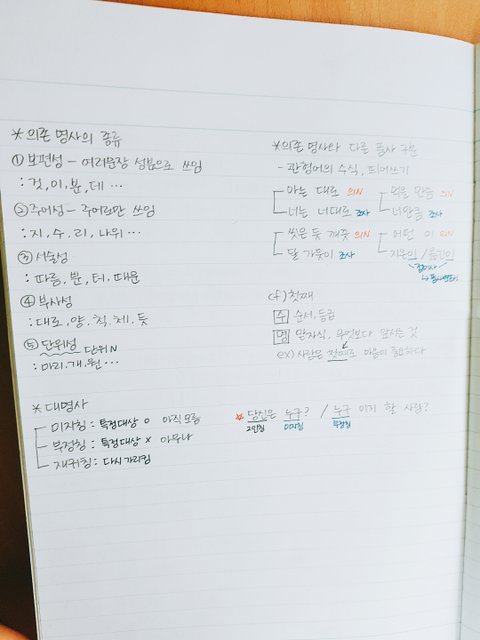 * 의존 명사의 종류
① 보편성 - 여러문장 성분으로 쓰임
: 것, 이, 분, 데 ...
② 주어성 - 주어로만 쓰임
: 지, 수, 리, 나위 ...
③ 서술성
: 따름, 뿐, 터, 때문
④ 부사성
: 대로, 양, 척, 체, 듯
⑤ 단위성 단위N
: 마리, 개, 원 ...
* 의존 명사와 다른 품사 구분
- 관형어의 수식, 띄어쓰기
아는 대로 의N
너는 너대로 조사
먹을 만큼 의N
너만큼 조사
씻은 듯 깨끗 의N
달 가듯이 조사
어떤 이 의N
지은이 /
접미사
cf) 첫째
수 순서, 등급
명 맏자식, 무엇보다 앞서는 것
ex) 사람은 첫째로 마음이 중요하다
* 대명사
미지칭 : 특정대상 o 아직 모름
부정칭 : 특정대상 x 아무나
재귀칭 : 다시 가리킴
☆ 당신은 누구? / 누구 이기 할 사람?
2인칭 미지칭 부정칭